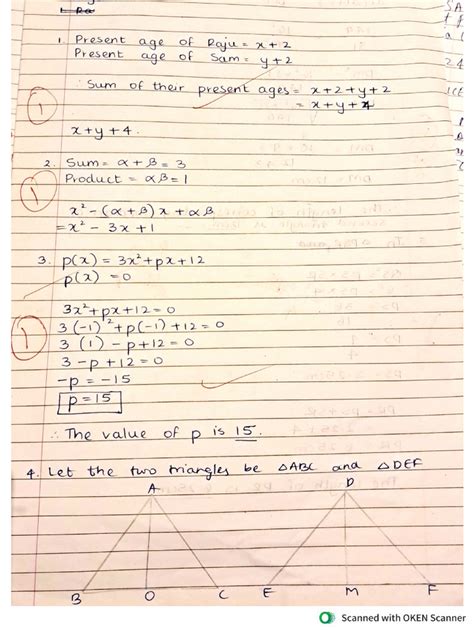 1. Present age of Raju = x+2
Present age of Sam = y+2
∴ Sum of their present ages = x+2+y+2
= x+y+4
1
x+y+4.
2. Sum = α+β = 3
Product = αβ = 1
1
x² - (α+β)x + αβ
= x² - 3x + 1
3. p(x) = 3x²+px+12
p(x) = 0
3x²+px+12=0
3(-1)²+p(-1)+12=0
1
3(1) - p+12=0
3 - p + 12 = 0
-p = -15
p = 15
∴ The value of p is 15.
4. Let the two triangles be △ABC and △DEF
A D
B O C E M F
Scanned with OKEN Scanner